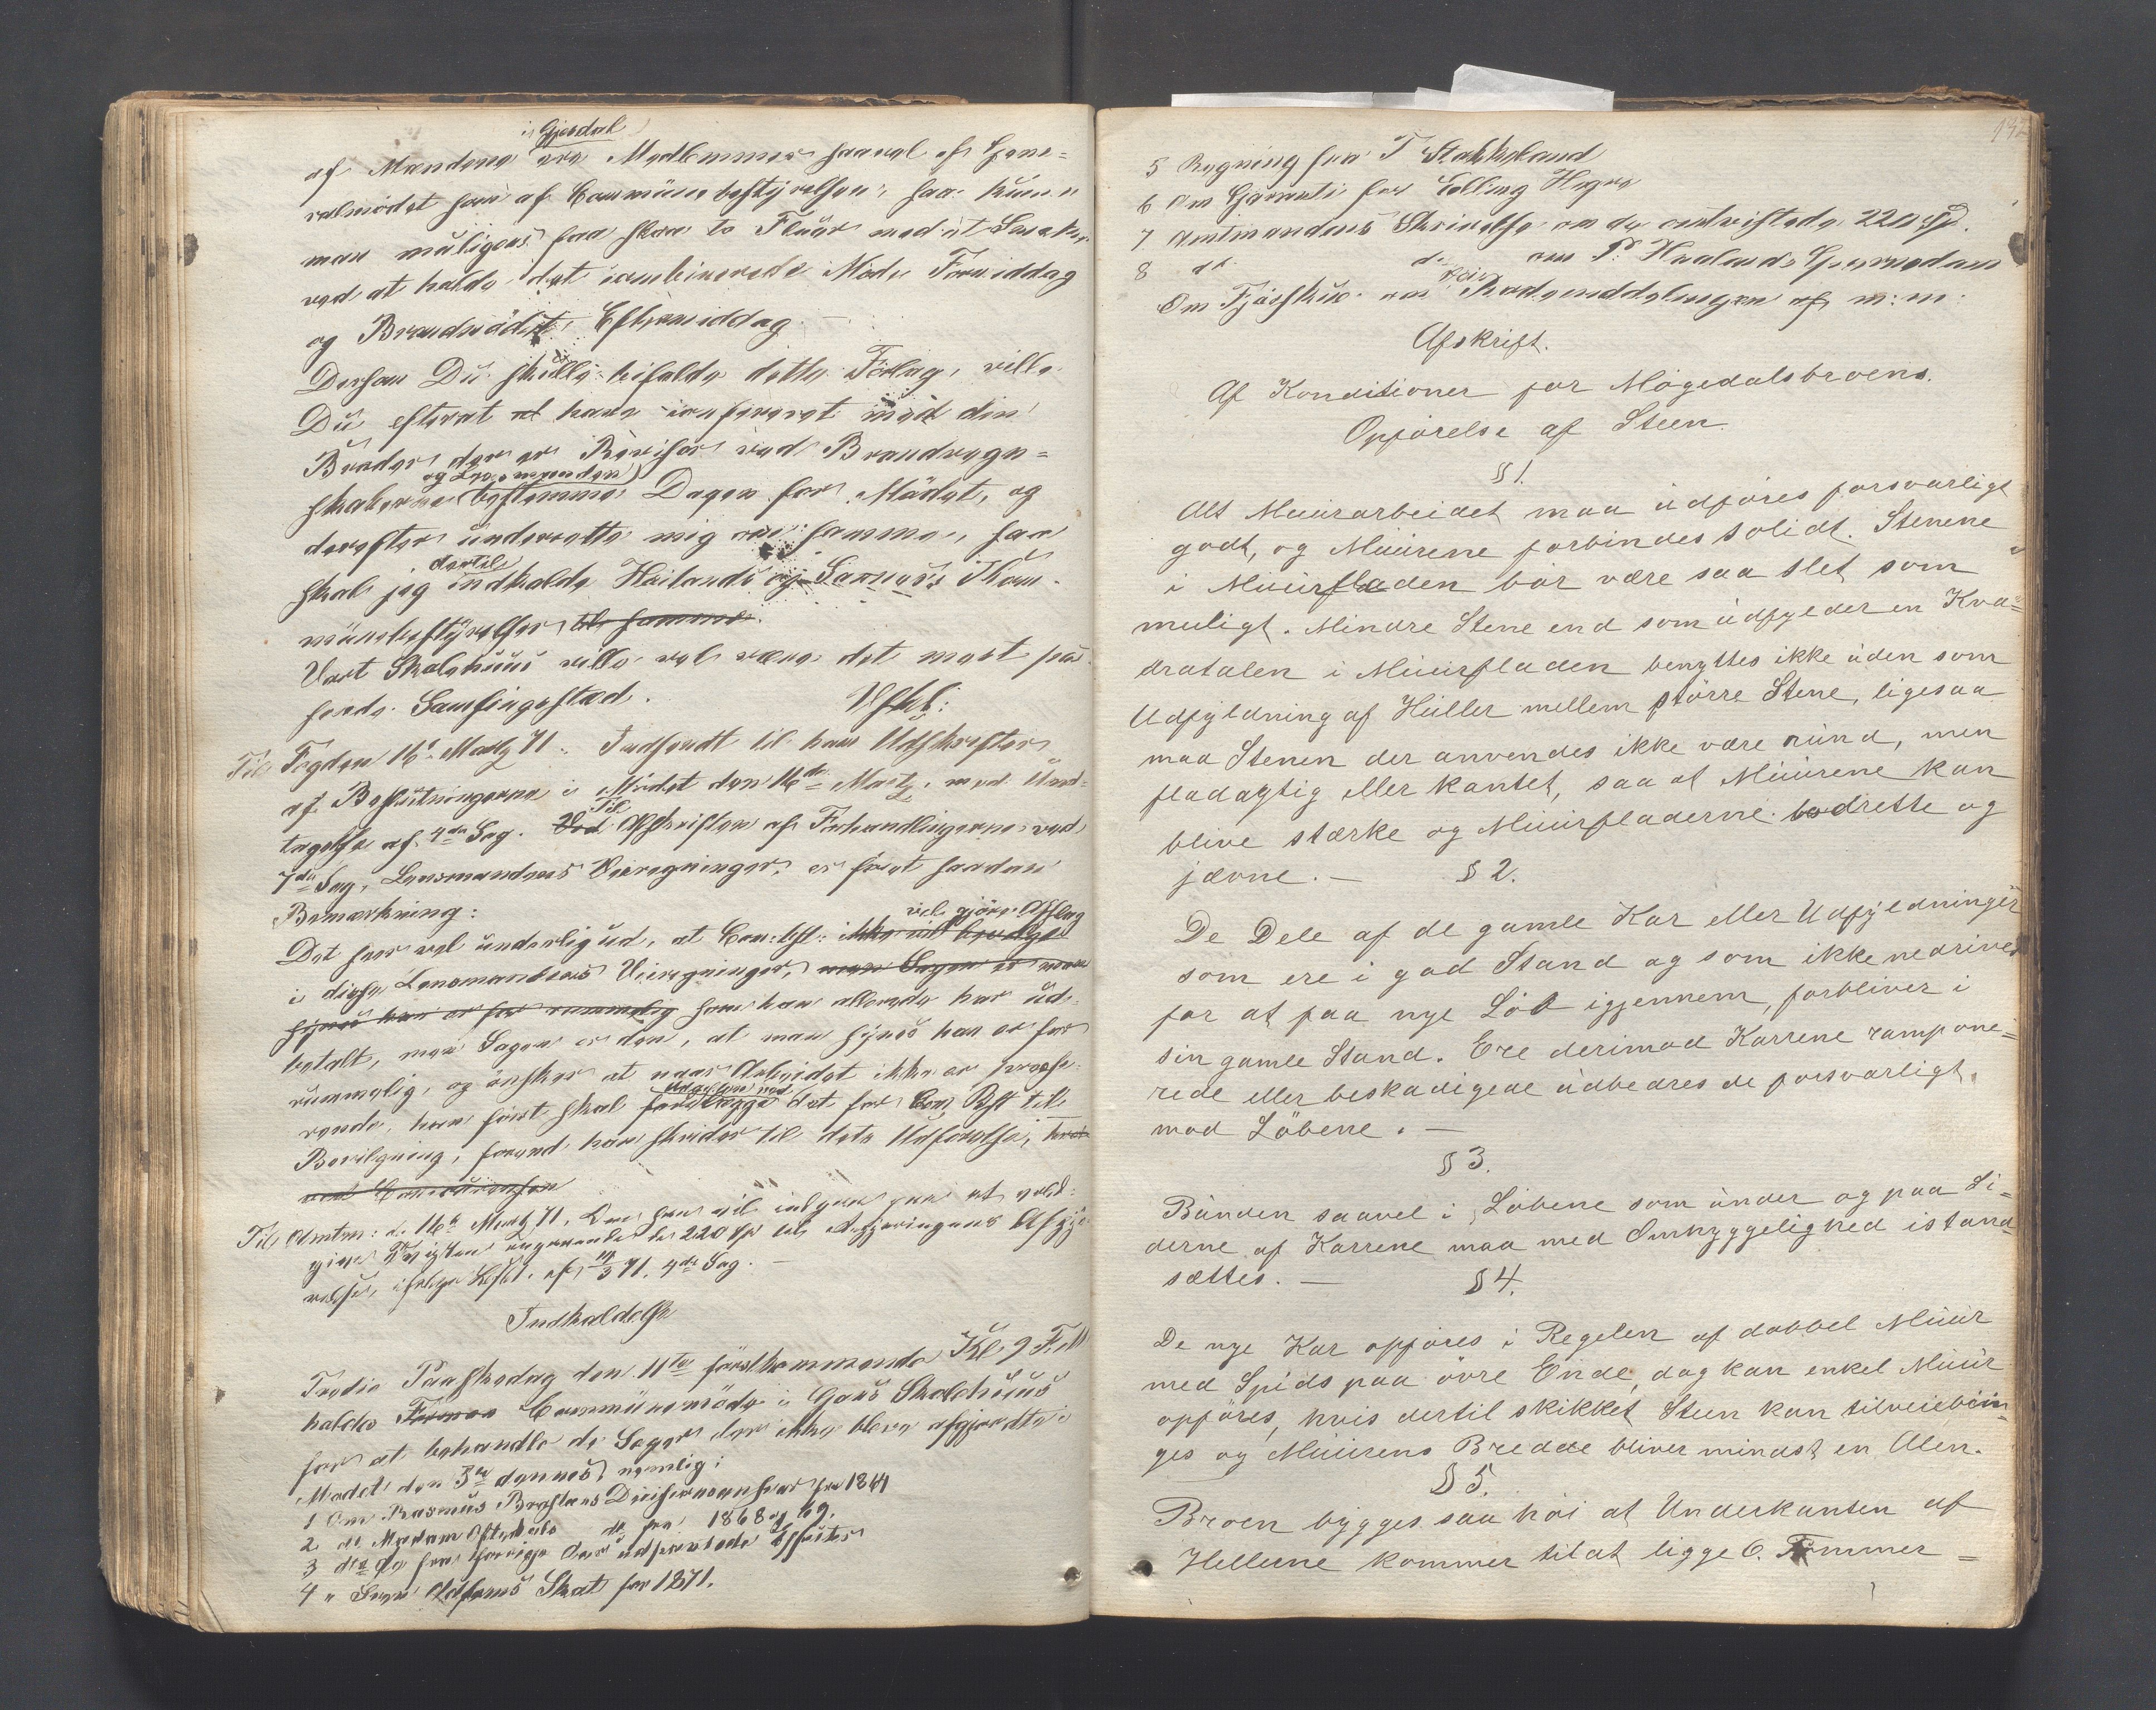 i Gjesdal
af Mændene ere Medlemmer saavel af Gene=
ralmödet som af Communebestyrelsen, saa kunne
man muligens faa slaa to Fluer med et Smæk
ved at holde det combinerede Möde Formiddag
og Brandmödet Eftermiddag. —
Dersom Du skulle bifalde dette Forslag, ville
Du efterat at have confereret med din
Broder, der er Revisor ved Brandregn=
og Lensmanden
skaberne bestemme Dagen for Mödet, og
derefter underrette mig om samme, saa
dertil
skal jeg indkalde Höilands og Sannæs's Kom=
munebestyrelser til samme.
Vort Skolehuus ville vel være det mest pas=
sende Samlingssted.
Til Fogden 16de Martz 71. Indsendt til ham Udskrifter
af Beslutningerne i Mödet den 16de Martz, med Und=
Til
tagelse af 4de Sag. Ved Afskriften af Forhandlingerne ved
7de Sag, Lensmandens Veiregninger, er föiet saadan
Bemærkning:
vil gjöre Afslag
Det sees vel underlig ud, at Com: best: ikke vil bevilge
i disse Lensmandens Veiregninger, men Sagen er man
synes han er for rummelig som han allerede har ud=
betalt, men Sagen er den, at man synes han er for
rummelig, og önsker at naar Arbeidet ikke er presse=
Udgiften ved
rende, han först skal forelægge det for Com. Best til
Bevilgning, forend han skrider til dets Udförelse,
ved Communen
Til Amtm: d. 16de Martz 71, Om han vil indgaa paa at vold=
give Tvisten angaaende de 220 Spd til Afgjöringens Afgjö
relse, ifölge Besl. af 11/3 71. 4de Sag. —
Indkaldelse
Tredie Paaskedag den 11te förstkommende Kl. 9 F.M.
holdes Formen Communemöde i Gans Skolehuus
for at behandle de Sager der ikke bleve afgjordte i
Mödet den 3de dennes, nemlig:
1 Om Rasmus Brostens Divisionsansvar for 1864
2 do Madam Oftedals do for 1868 og 69.
3 do de fra forrige Aar udsatte
4 " Svend Skat for 1871.
5 Regning fra T Stokkeland
6 Om Garanti for Elling Hegre
7 Amtmandens Skrivelse om de omtvistede 220 Spd.
8 do do om P. Haalands
Om om Rodeinddelingen af m: m:
Afskrift.
Af Konditioner for Mögedalsbroens
Opförelse af Steen.
§ 1.
Alt Muurarbeidet maa udföres forsvarligt
godt, og Muurene forbindes solidt. Stenene
i Muurfladen bör være saa slet som
muligt. Mindre Stene end som udfylder en Kva=
dratalen i Muurfladen benyttes ikke uden som
Udfyldning af Huller mellem större Stene, ligesaa
maa Stenen der anvendes ikke være rund, men
fladagtig eller kantet, saa at Muurene kan
blive stærke og Muurfladerne lodrette og
jævne. — § 2.
De Dele af de gamle Kar eller Udfyldninger
som ere i god Stand og som ikke nedrives
for at faa nye Löb igjennem, forbliver i
sin gamle Stand. Ere derimod Karrene rampone=
rede eller beskadigede udbedres de forsvarligt
mod Löbene. —
§ 3.
Bunden saavel i Löbene som under og paa Si=
derne af Karrene maa med Omhyggelighed istand
sættes. — § 4.
De nye Kar opföres i Regelen af dobbel Muur
med Spids paa övre Ende, dog kan enkel Muur
opföres, hvis dertil skikket Steen kan tilveiebrin=
ges og Muurens Bredde bliver mindst en Alen.
§ 5.
Broen bygges saa höi at Underkanten af
Hellerne kommer til at ligge 6. Tommer =